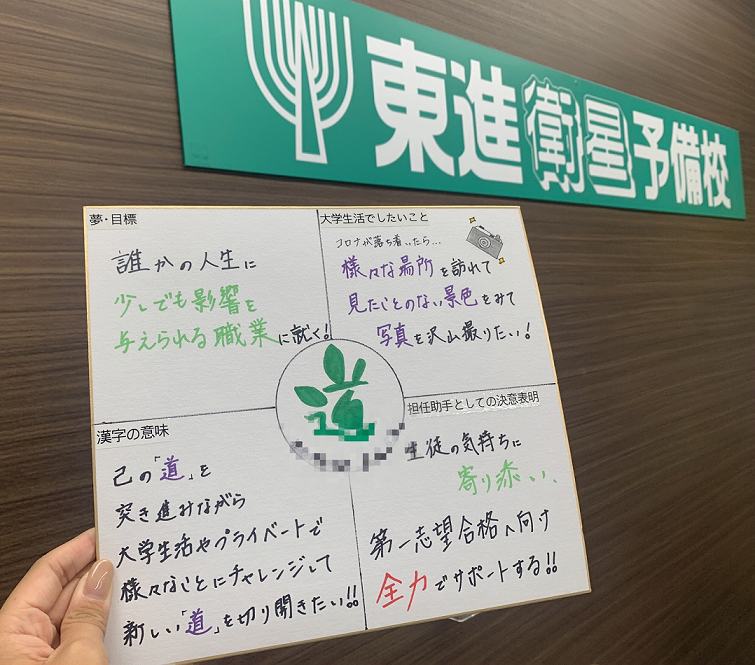 東進衛星予備校
夢・目標
誰かの人生に
少しでも影響を
与えられる職業に就く!
大学生活でしたいこと
コロナが落ち着いたら...
様々な場所を訪れて
見たことのない景色をみて
写真を沢山撮りたい!
道
漢字の意味
己の「道」を
突き進みながら
大学生活やプライベートで
様々なことにチャレンジして
新しい「道」を切り開きたい!!
担任助手としての決意表明
生徒の気持ちに
寄り添い、
第一志望合格へ向け
全力でサポートする!!